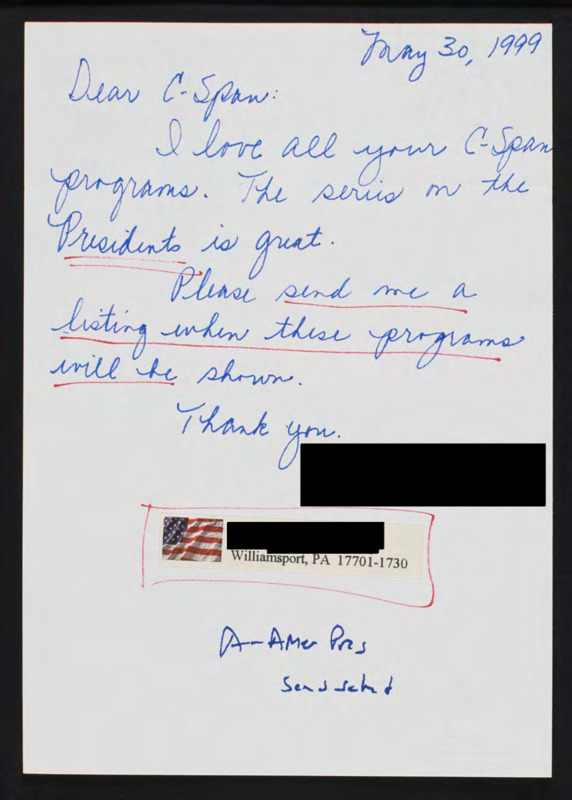 May 30, 1999
Dear C-Span:
I love all your C-Span
programs. The series on the
Presidents is great.
Please send me a
listing when these programs
will be shown.
Thank you.
Williamsport, PA 17701-1730
A-Amer Pres
send sched